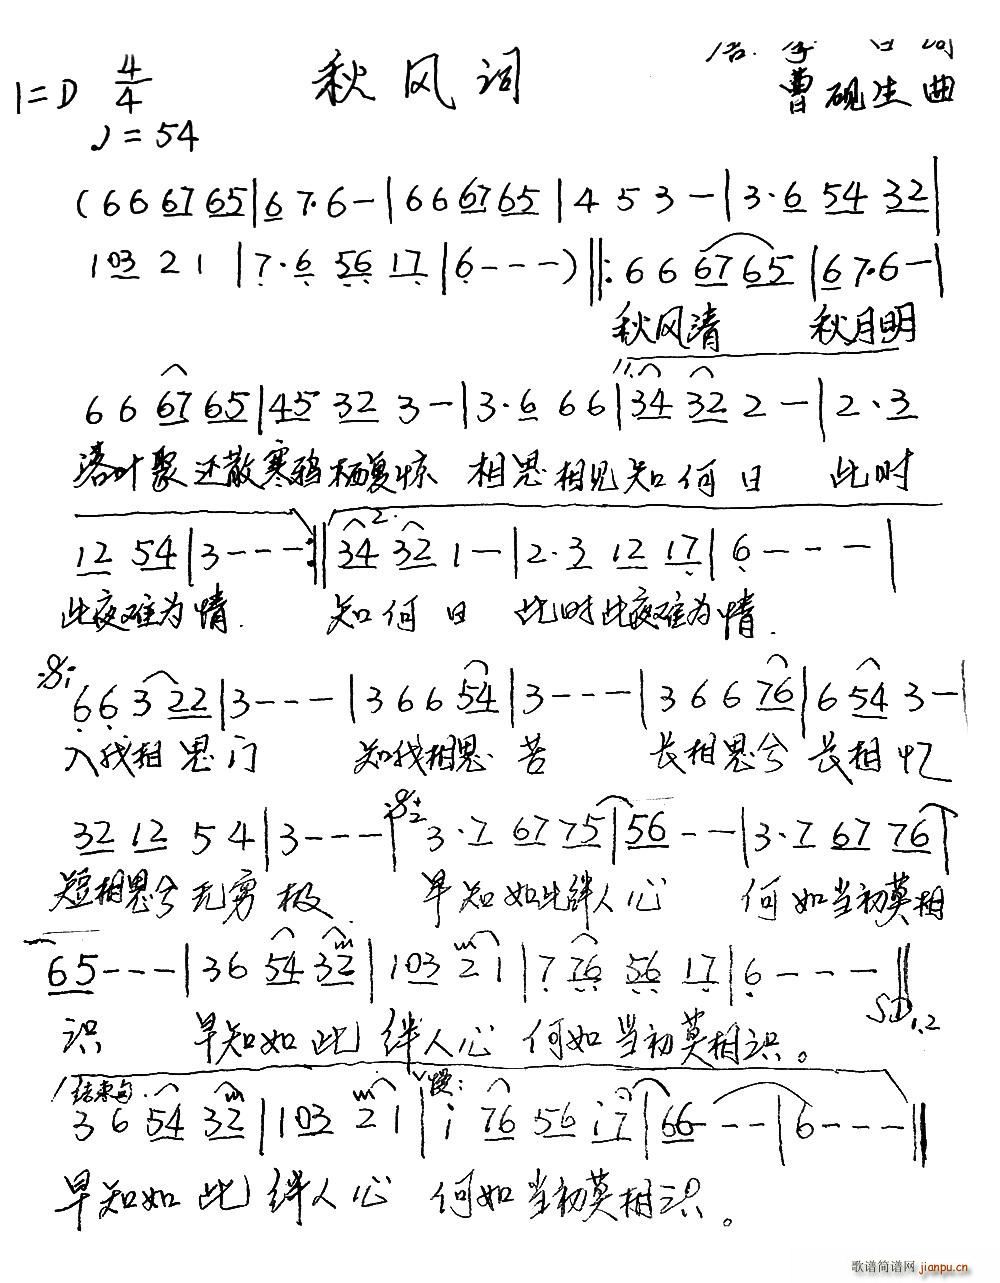 1=D 4/4 秋风词 李白词
♩=54 曹砚生曲
(6 6 67 65|6 7·6-|6 6 67 65|4 5 3-|3·6 54 32|
103 2 1|7·6 56 17|6---)‖:6 6 67 65|6 7·6-|
秋风清 秋月明
1.
6 6 67 65|45 32 3-|3·6 6 6|34 32 2-|2·3
落叶聚还散寒鸦栖复惊 相思相见知何日 此时
2.
12 54|3---:‖34 32 1-|2·3 12 17|6---|
此夜难为情. 知何日 此时此夜难为情.
𝄋1
6 6 3 22|3---|3 6 6 54|3---|3 6 6 76|6 54 3-|
入我相思门 知我相思苦 长相思兮长相忆
𝄋2
32 12 5 4|3---|3·7 67 75|56---|3·7 67 76|
短相思兮无穷极 早知如此绊人心 何如当初莫相
65---|3 6 54 32|103 2 1|7 76 56 17|6---‖
识 早知如此绊人心 何如当初莫相识。
结束句. 慢:
3 6 54 32|103 2 1|i 76 56 i7|66---|6---‖
早知如此绊人心 何如当初莫相识。
歌谱简谱网
jianpu.cn